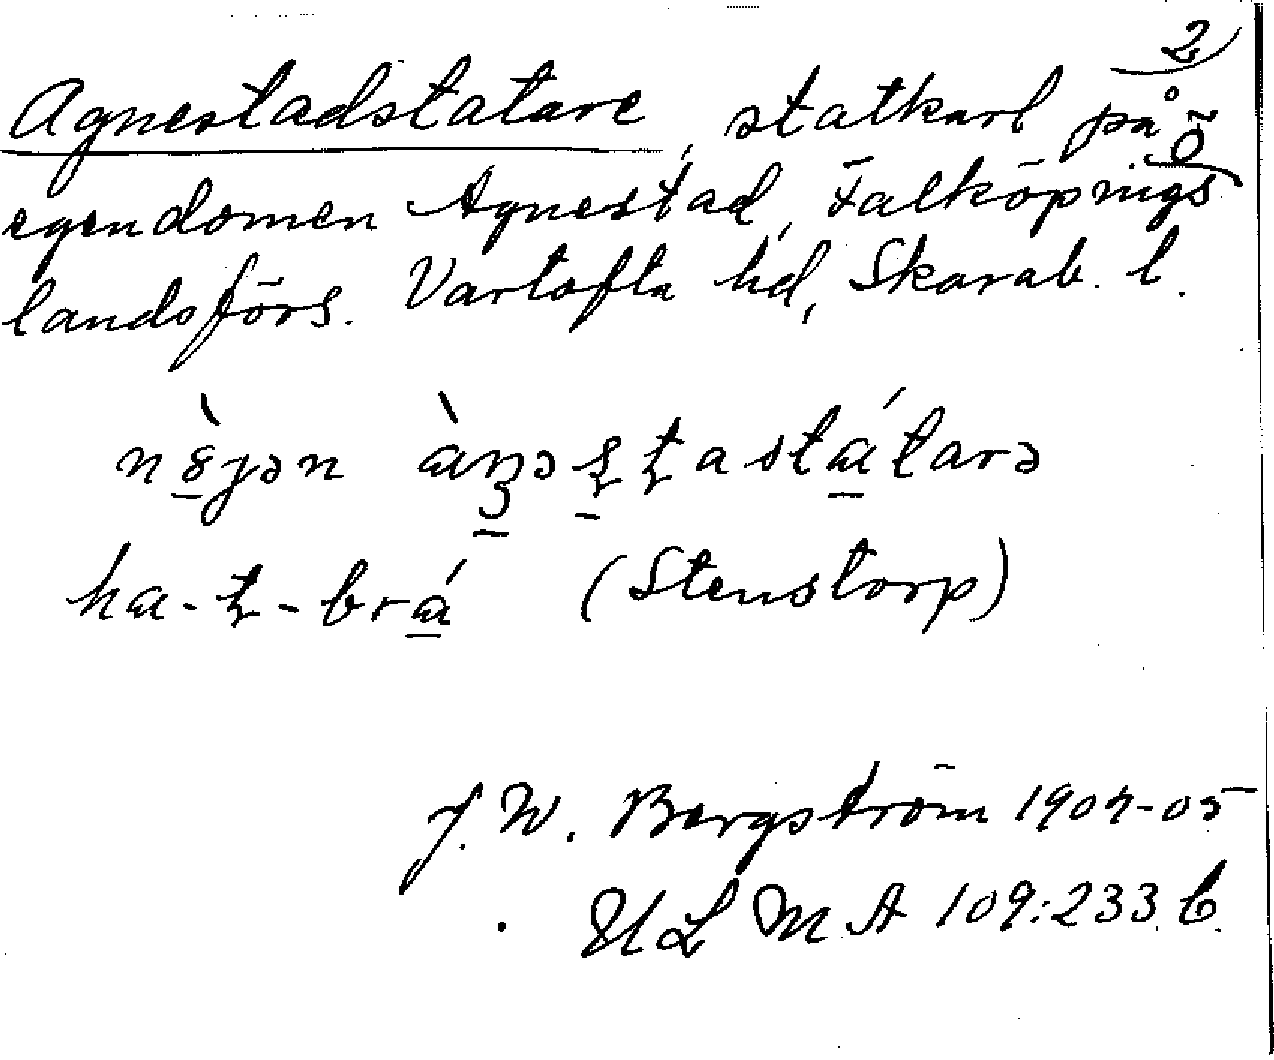 2
Agnestadstatare, statkarl på ö
egendomen Agnestad, Falköpings
landsförs. Vartofta hd, Skarab. l.
ha-t-brá (Stenstorp)
J. W. Bergström 1904-05
ULMA 109:233 b